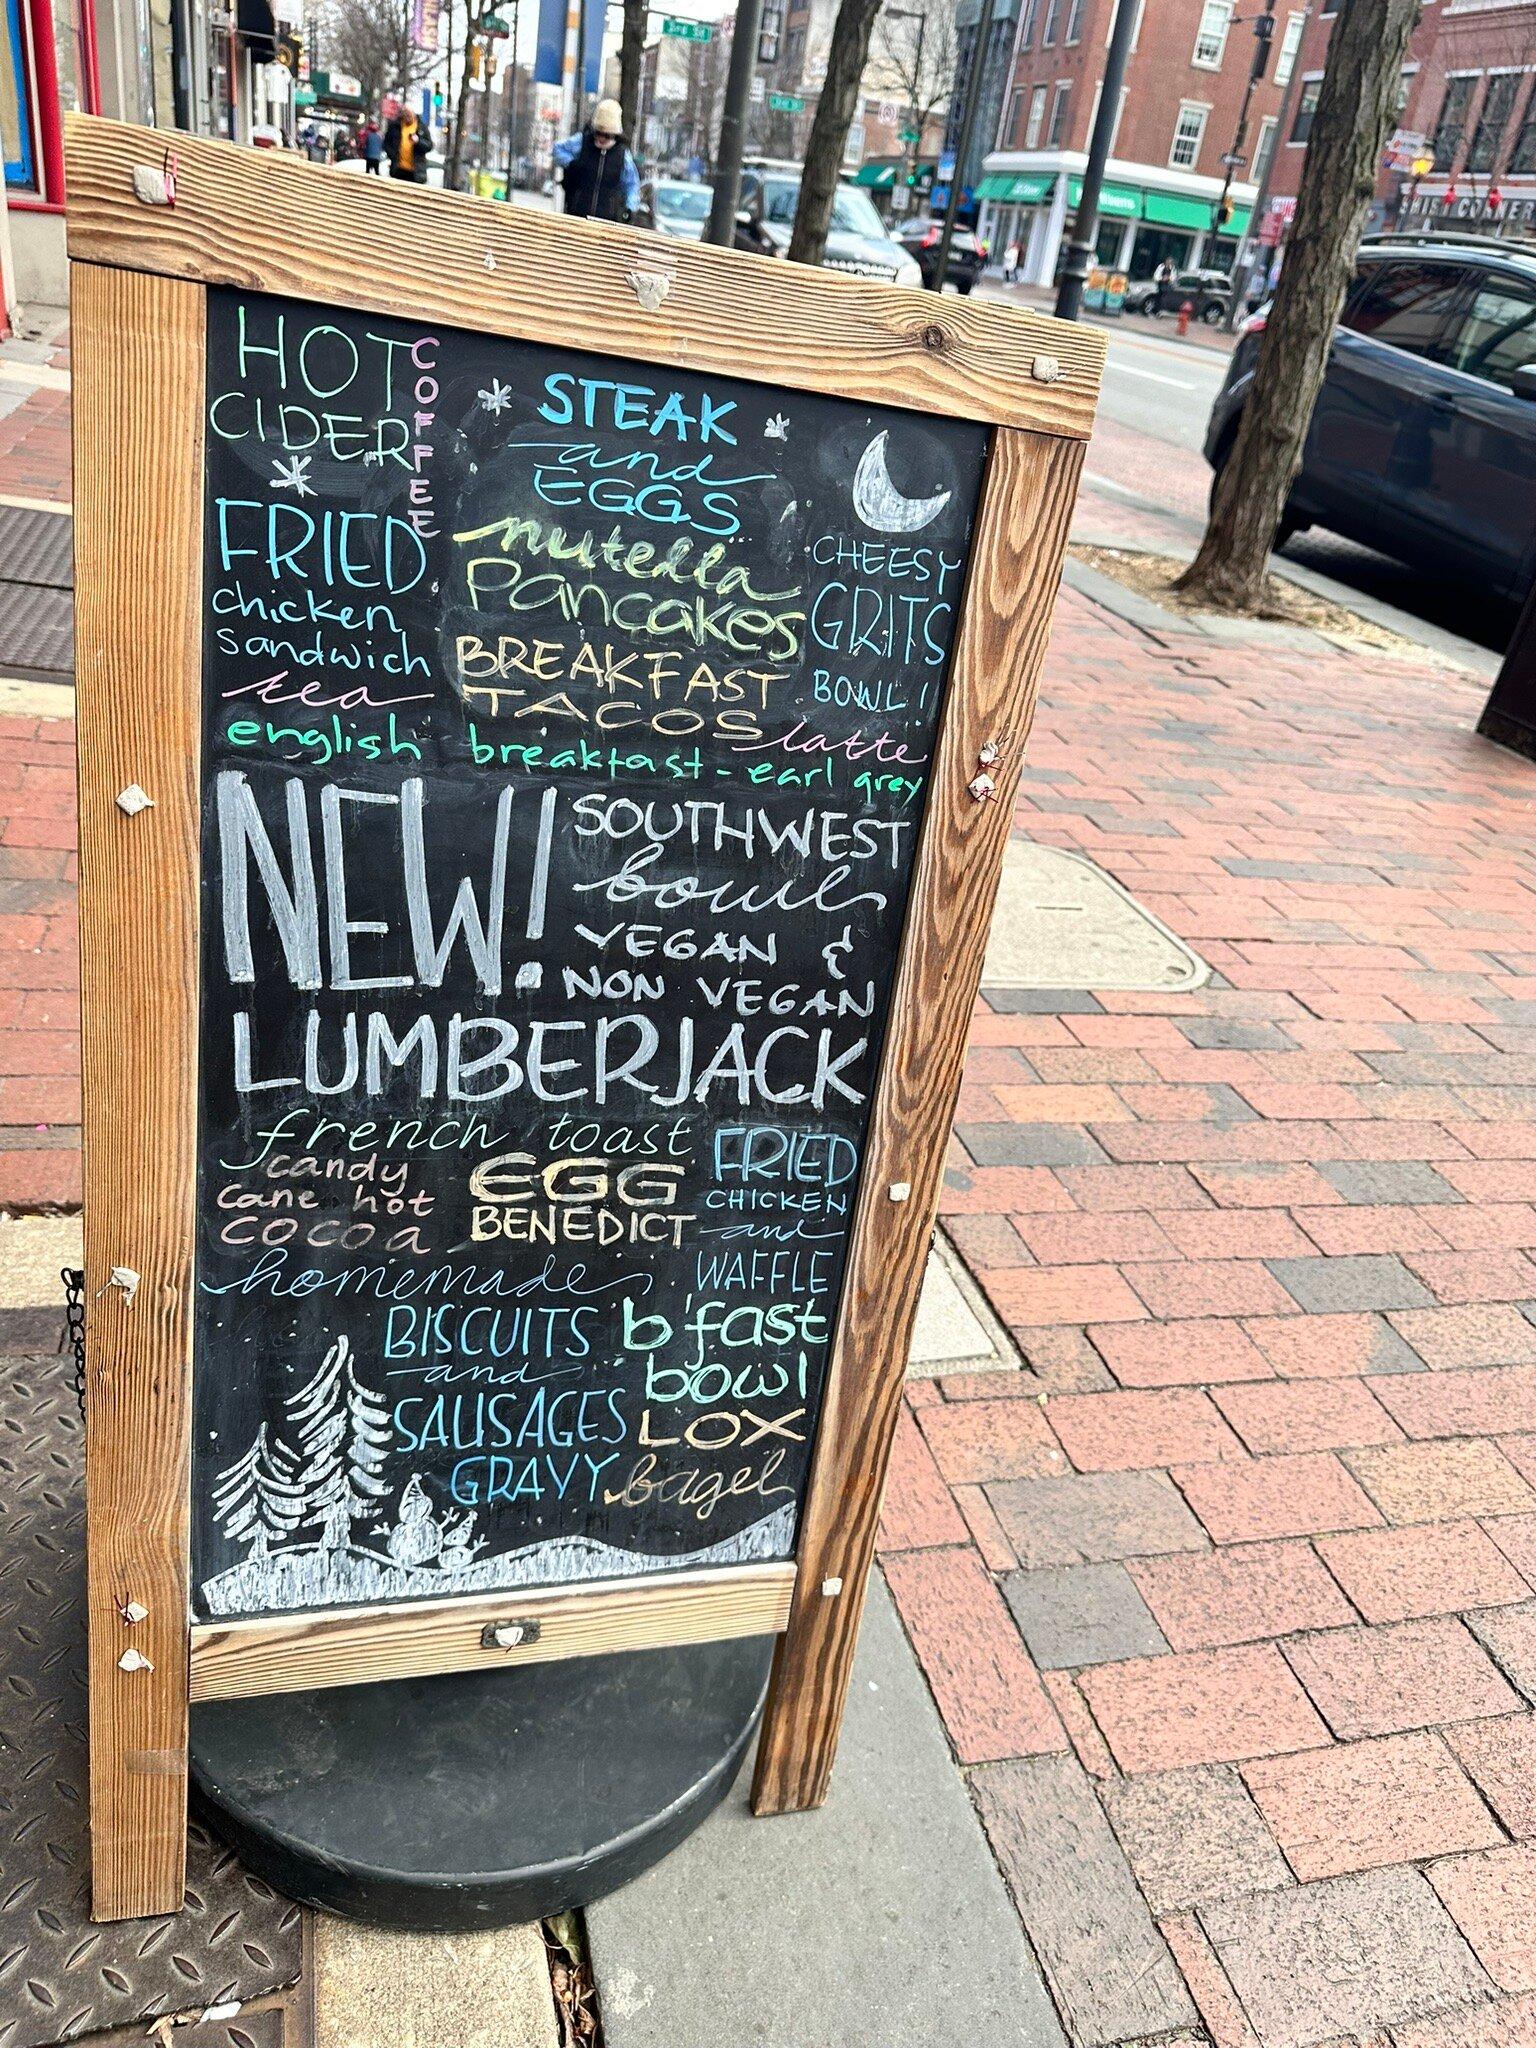 HOT
CIDER
COFFEE
STEAK
and
EGGS
FRIED
chicken
sandwich
nutella
Pancakes
CHEESY
GRITS
BOWL!
BREAKFAST
TACOS
tea
latte
english breakfast - earl grey
NEW!
SOUTHWEST
bowl
VEGAN &
NON VEGAN
LUMBERJACK
french toast
candy
cane hot
cocoa
EGG
BENEDICT
FRIED
CHICKEN
and
WAFFLE
homemade
BISCUITS
and
SAUSAGES
GRAVY
b'fast
bowl
LOX
bagel